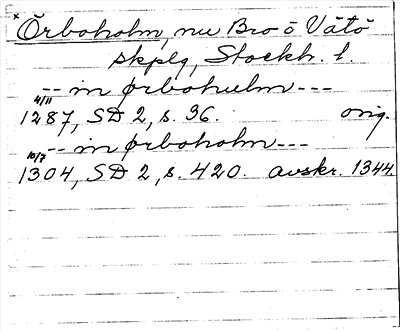 * Örboholm, nu Bro o Vätö
skplg, Stockh. l.
-- in ørbohulm ---
4/11
1287, SD 2, s. 96. orig.
10/7 -- in ørboholm ---
1304, SD 2, s. 420. avskr. 1344.